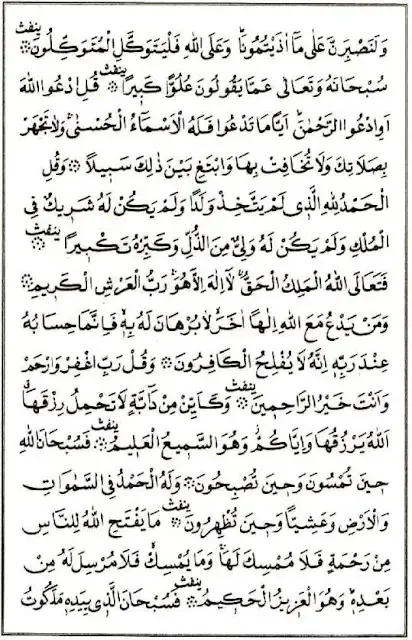 وَلَنَصْبِرَنَّ عَلٰى مَٓا اٰذَيْتُمُونَاۜ وَعَلَى اللهِ فَلْيَتَوَكَّلِ الْمُتَوَكِّلُونَ ۞ ينفث
سُبْحَانَهُ وَتَعَالٰى عَمَّا يَقُولُونَ عُلُوًّا كَبِيرًا ۞ ينفث قُلِ ادْعُوا اللهَ
اَوِادْعُوا الرَّحْمٰنَۜ اَيًّا مَا تَدْعُوا فَلَهُ الْاَسْمَٓاءُ الْحُسْنٰىۚ وَلَا تَجْهَرْ
بِصَلَاتِكَ وَلَا تُخَافِتْ بِهَا وَابْتَغِ بَيْنَ ذٰلِكَ سَبِيلاً ۞ وَقُلِ
الْحَمْدُ لِلّٰهِ الَّذِى لَمْ يَتَّخِذْ وَلَدًا وَلَمْ يَكُنْ لَهُ شَرِيكٌ فِى
الْمُلْكِ وَلَمْ يَكُنْ لَهُ وَلِىٌّ مِنَ الذُّلِّ وَكَبِّرْهُ تَكْبِيرًا ۞ ينفث
فَتَعَالَى اللهُ الْمَلِكُ الْحَقُّۚ لَٓا اِلٰهَ اِلَّا هُوَۚ رَبُّ الْعَرْشِ الْكَرِيمِ ۞
وَمَنْ يَدْعُ مَعَ اللهِ اِلٰهًا اٰخَرَۙ لَا بُرْهَانَ لَهُ بِهِۙ فَاِنَّمَا حِسَابُهُ
عِنْدَ رَبِّهِۜ اِنَّهُ لَا يُفْلِحُ الْكَافِرُونَ ۞ وَقُلْ رَبِّ اغْفِرْ وَارْحَمْ
وَاَنْتَ خَيْرُ الرَّاحِمِينَ ۞ ينفث وَكَاَيِّنْ مِنْ دَٓابَّةٍ لَا تَحْمِلُ رِزْقَهَاۗ
اَللهُ يَرْزُقُهَا وَاِيَّاكُمْۘ وَهُوَ السَّمِيعُ الْعَلِيمُ ۞ ينفث فَسُبْحَانَ اللهِ
حِينَ تُمْسُونَ وَحِينَ تُصْبِحُونَ ۞ وَلَهُ الْحَمْدُ فِى السَّمٰوَاتِ
وَالْاَرْضِ وَعَشِيًّا وَحِينَ تُظْهِرُونَ ۞ ينفث مَا يَفْتَحِ اللهُ لِلنَّاسِ
مِنْ رَحْمَةٍ فَلَا مُمْسِكَ لَهَاۚ وَمَا يُمْسِكْۙ فَلَا مُرْسِلَ لَهُ مِنْ
بَعْدِهِۜ وَهُوَ الْعَزِيزُ الْحَكِيمُ ۞ ينفث فَسُبْحَانَ الَّذِى بِيَدِهِ مَلَكُوتُ